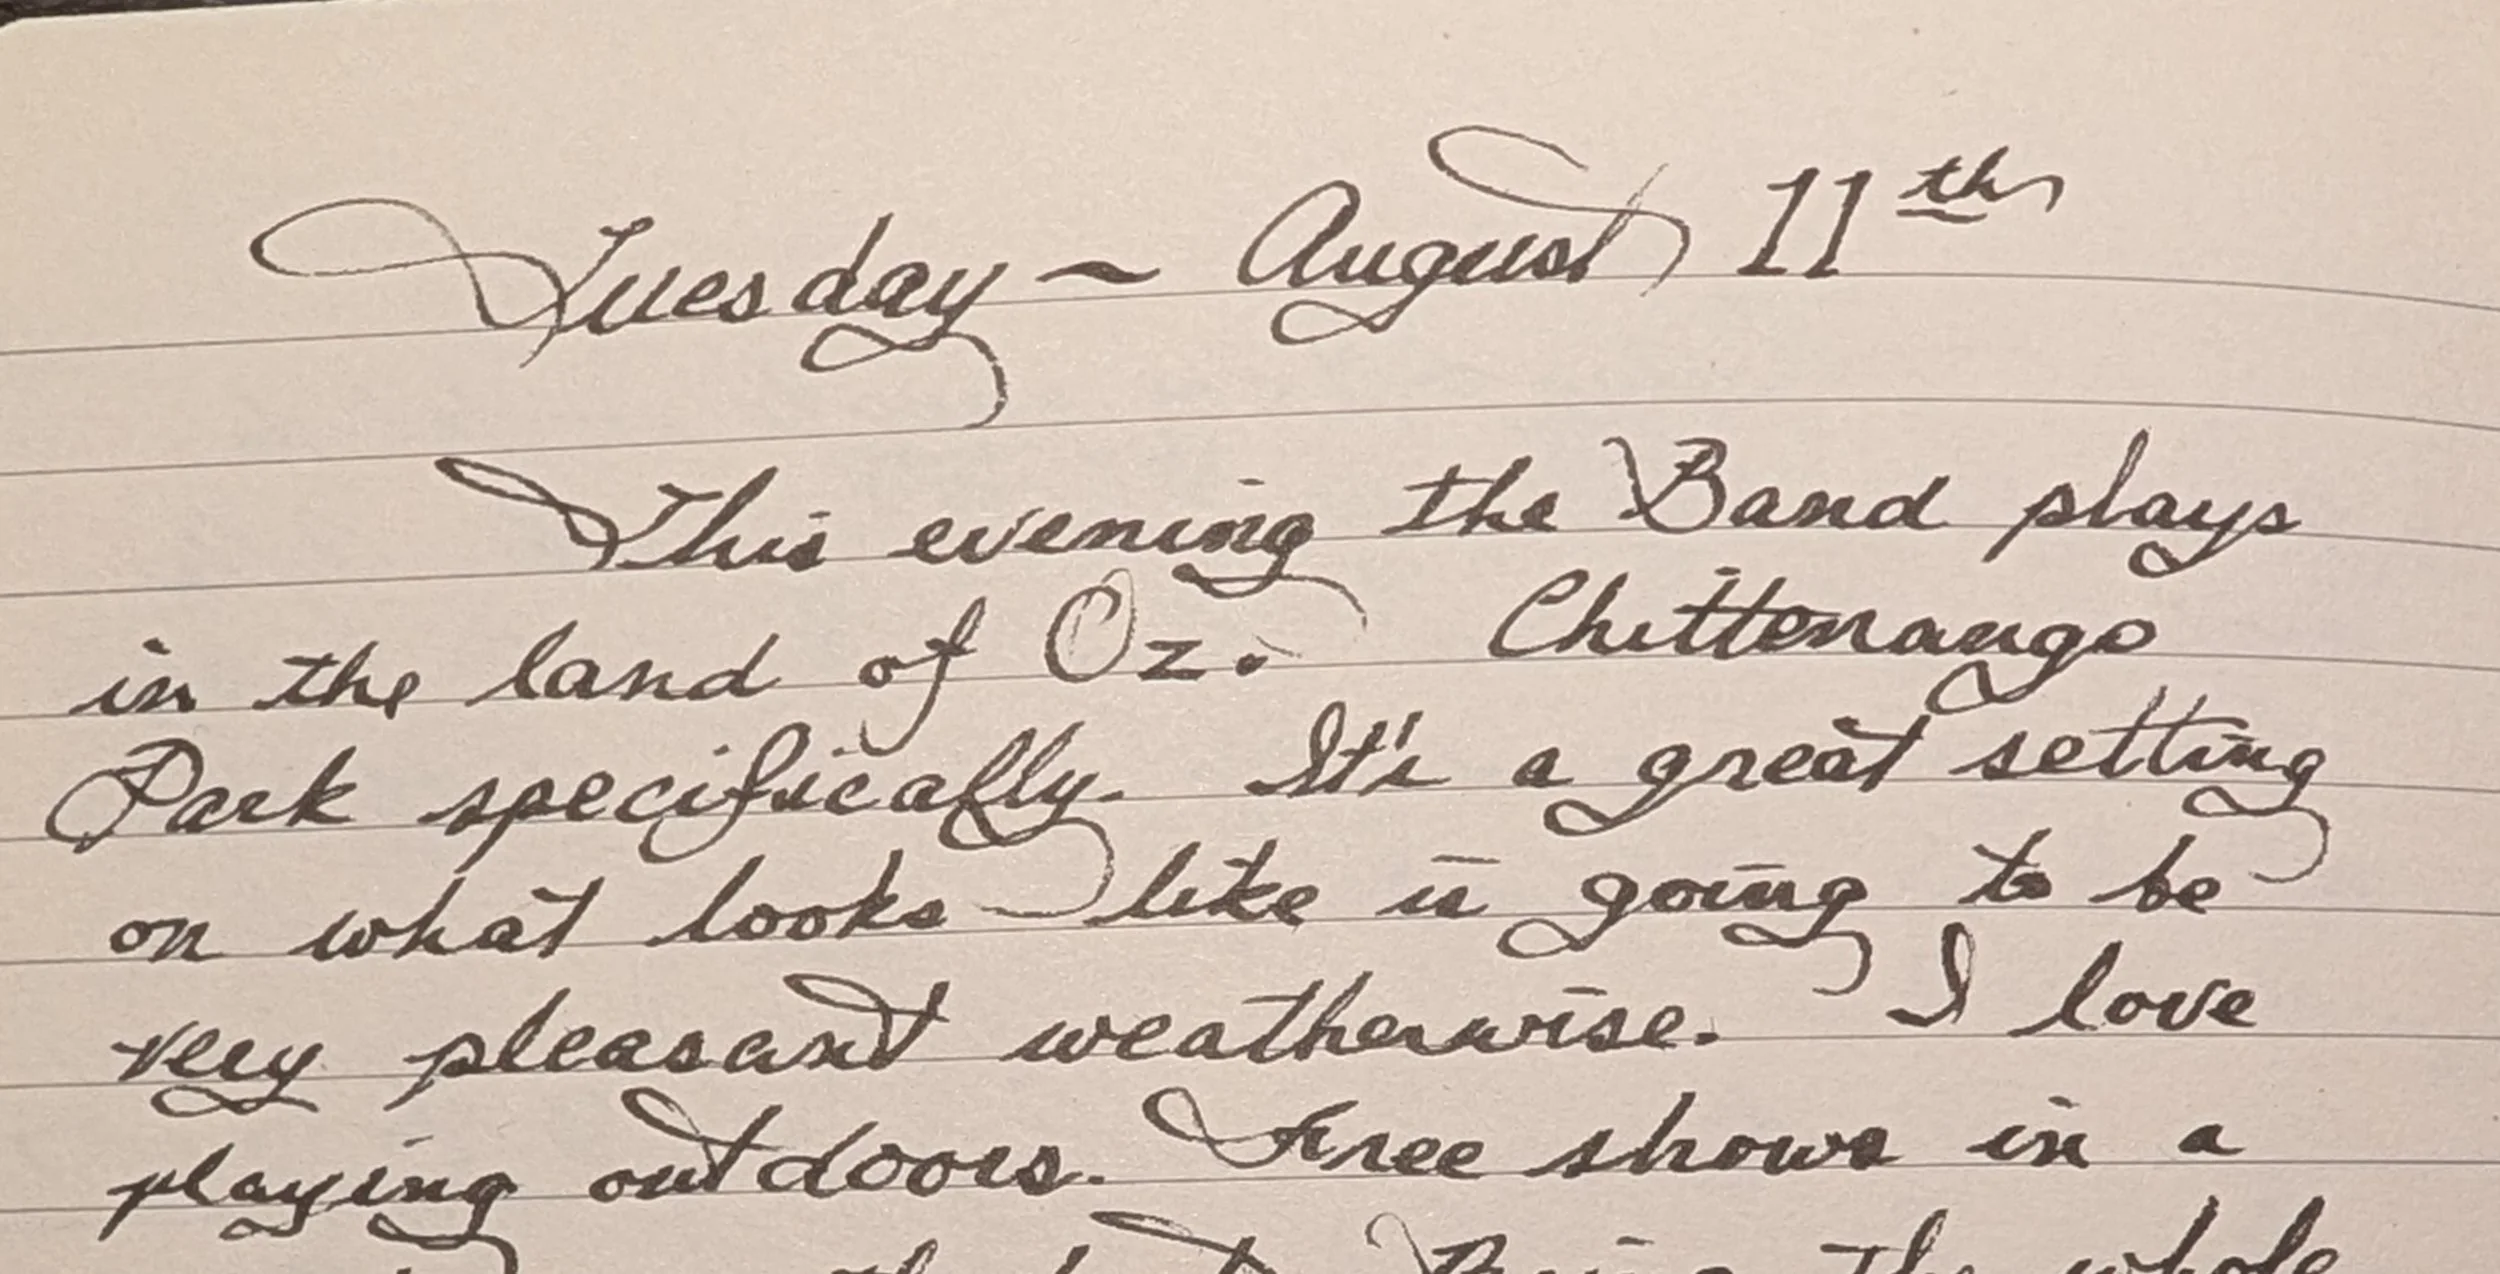 Tuesday ~ August 11th
This evening the Band plays
in the land of Oz. Chittenango
Park specifically. It's a great setting
on what looks like is going to be
very pleasant weatherwise. I love
playing outdoors. Free shows in a
the whole